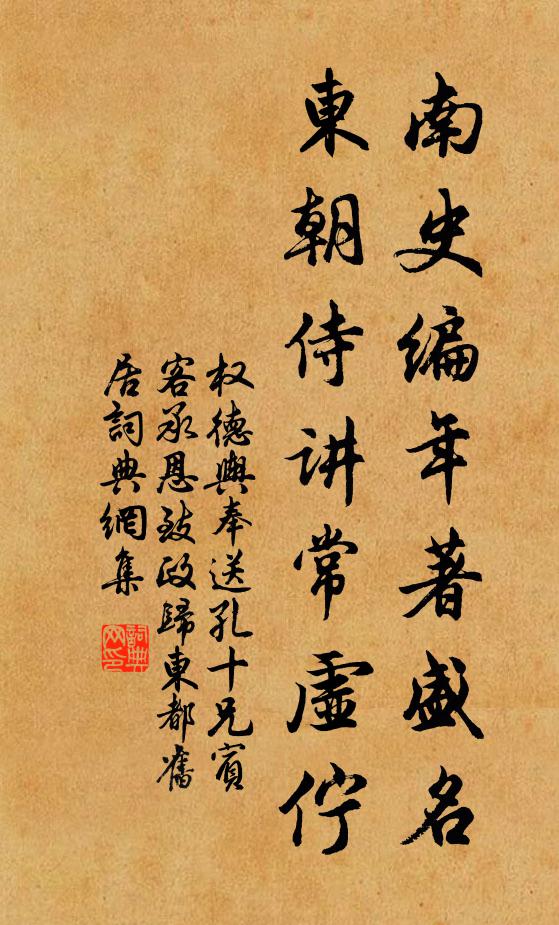 南史编年著盛名
東朝侍讲常虚佇
权德輿奉送孔十兄賓
客承恩致政歸東都舊
居詞典網集
詞典
网印